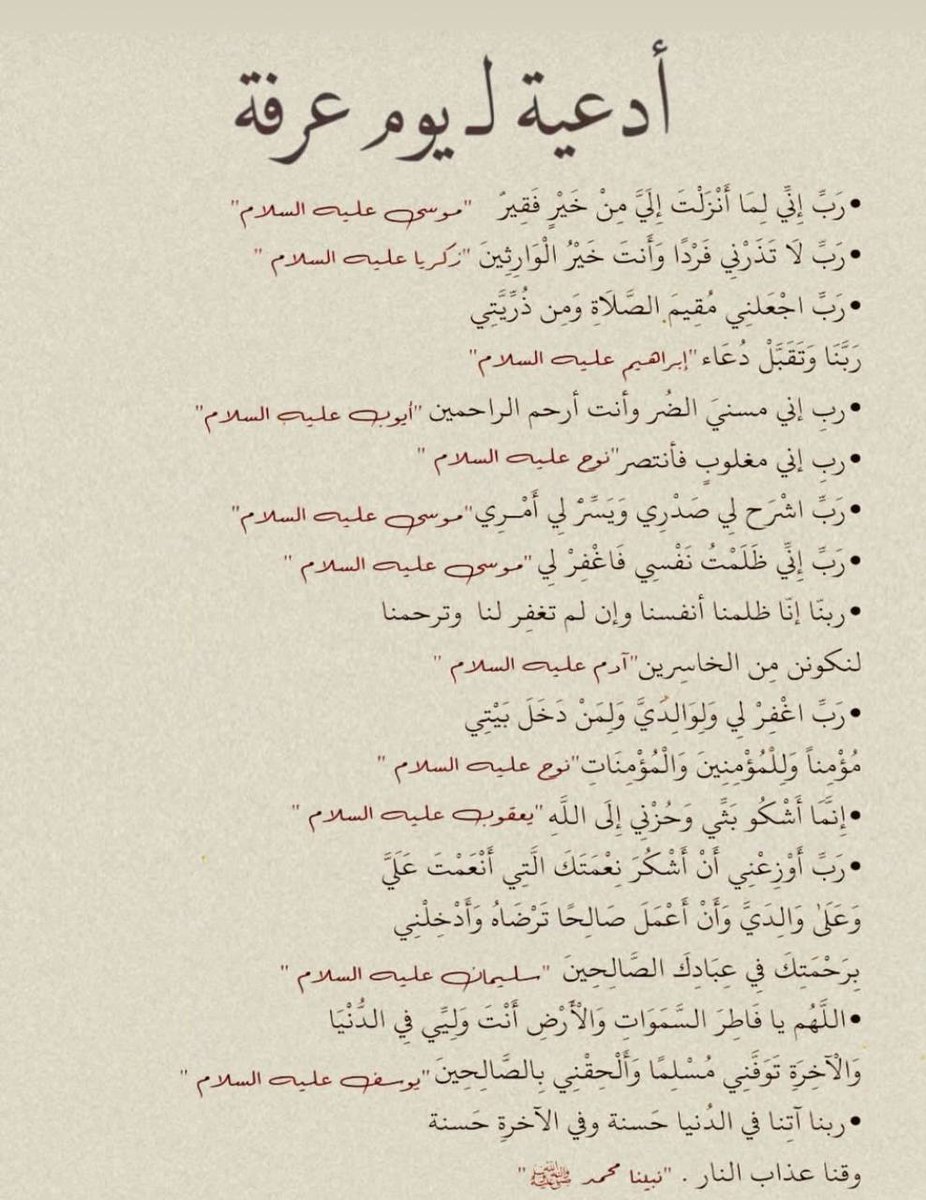 أدعية لـ يوم عرفة
•رَبِّ إِنِّي لِمَا أَنْزَلْتَ إِلَيَّ مِنْ خَيْرٍ فَقِيرٌ "موسى عليه السلام"
•رَبِّ لَا تَذَرْنِي فَرْدًا وَأَنتَ خَيْرُ الْوَارِثِينَ "زكريا عليه السلام "
•رَبِّ اجْعَلنِي مُقِيمَ الصَّلَاةِ وَمِن ذُرِّيَّتِي
رَبَّنَا وَتَقَبَّلْ دُعَاء "إبراهيم عليه السلام"
•ربِ إني مسنيَ الضُر وأنت أرحم الراحمين "أيوب عليه السلام"
•ربِ إني مغلوبٍ فأنتصر"نوح عليه السلام "
•رَبِّ اشْرَح لِي صَدْرِي وَيَسِّرْ لِي أَمْـرِي"موسى عليه السلام"
•رَبِّ إِنِّي ظَلَمْتُ نَفْسِي فَاغْفِرْ لِي "موسى عليه السلام "
•ربنّا إنّا ظلمنا أنفسنا وإن لم تغفِر لنا وترحمنا
لنكونن مِن الخاسِرين"آدم عليه السلام "
•رَبِّ اغْفِرْ لِي وَلِوَالِدَيَّ وَلِمَنْ دَخَلَ بَيْتِي
مُؤْمِناً وَلِلْمُؤْمِنِينَ وَالْمُؤْمِنَاتِ"نوح عليه السلام "
•إِنَّمَا أَشْكُو بَثِّي وَحُزْنِي إِلَى اللَّهِ "يعقوب عليه السلام "
•رَبِّ أَوْزِعْنِي أَنْ أَشْكُرَ نِعْمَتَكَ الَّتِي أَنْعَمْتَ عَلَيَّ
وَعَلَىٰ وَالِدَيَّ وَأَنْ أَعْمَلَ صَالِحًا تَرْضَاهُ وَأَدْخِلْنِي
بِرَحْمَتِكَ فِي عِبَادِكَ الصَّالِحِينَ "سليمان عليه السلام "
•اللَّهُم يا فَاطِرَ السَّمَوَاتِ وَالْأَرْضِ أَنْتَ وَلِيِّي فِي الدُّنْيَا
وَالْآخِرَةِ تَوَفَّنِي مُسْلِمًا وَأَلْحِقْنِي بِالصَّالِحِينَ "يوسف عليه السلام "
•ربنا آتِنا في الدُنيا حَسنة وفي الآخرةِ حَسنة
وقنا عذاب النار . "نبينا محمد ﷺ "